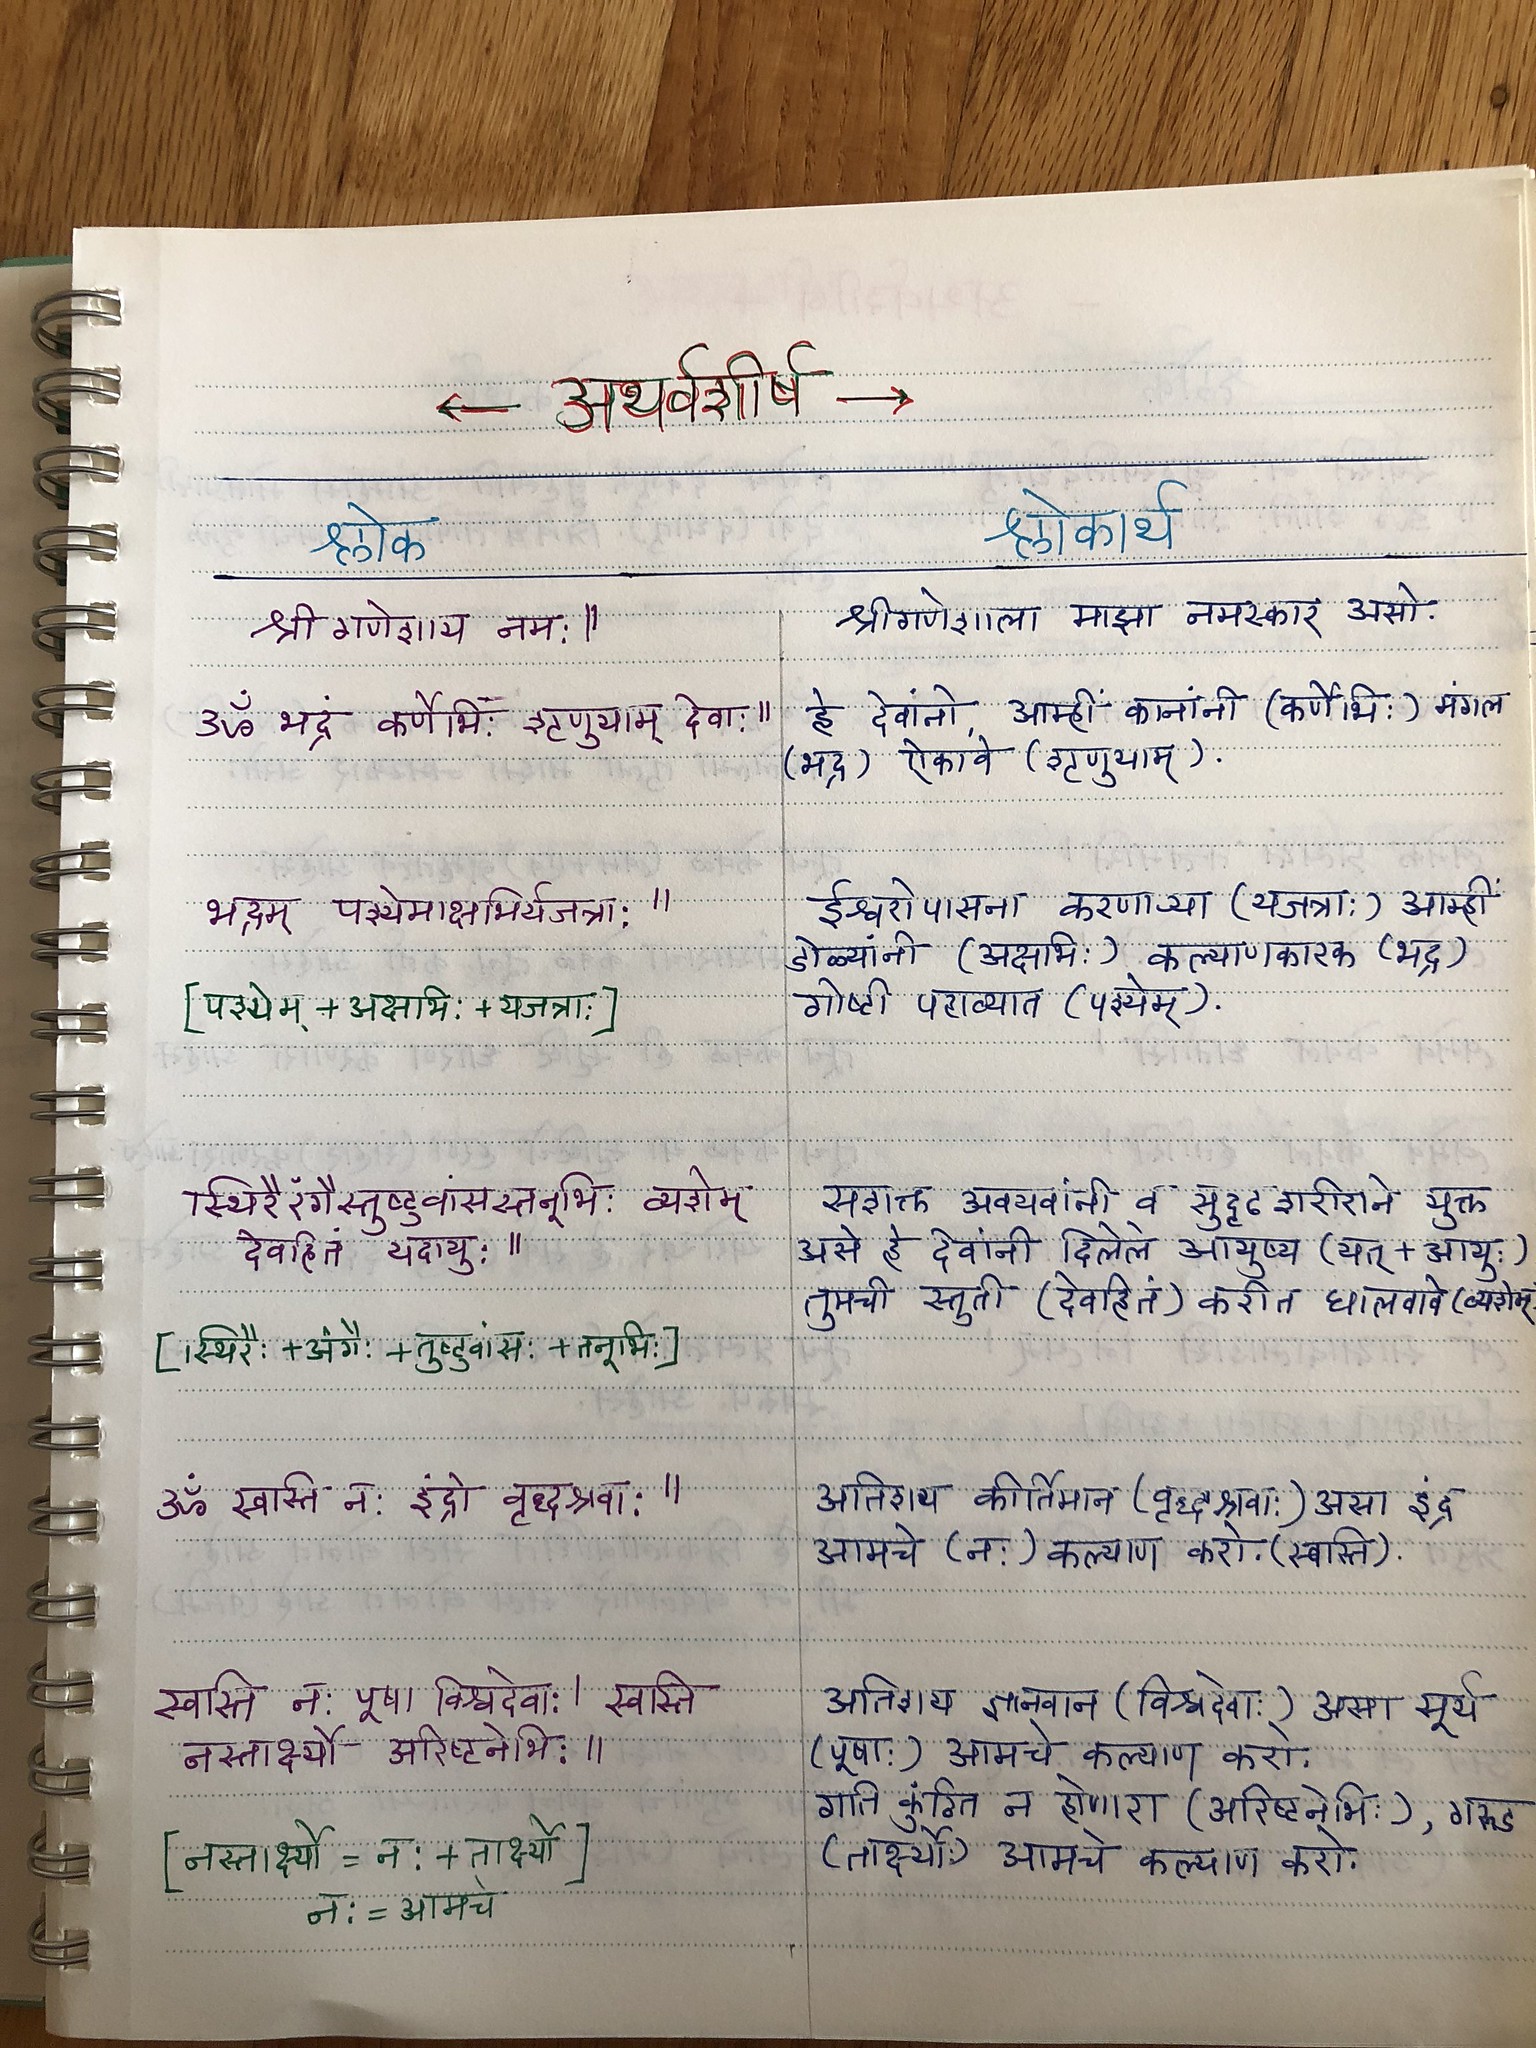 ← अथर्वशीर्ष →
श्लोक
श्लोकार्थ
श्री गणेशाय नमः ||
श्रीगणेशाला माझा नमस्कार असो.
ॐ भद्रं कर्णेभिः शृणुयाम् देवाः ||
हे देवांनो, आम्हीं कानांनी (कर्णेभिः) मंगल
(भद्र) ऐकावे (शृणुयाम्).
भद्रम् पश्येमाक्षभिर्यजत्राः ||
[पश्येम् + अक्षभिः + यजत्राः]
ईश्वरोपासना करणाऱ्या (यजत्राः) आम्हीं
डोळ्यांनी (अक्षभिः) कल्याणकारक (भद्र)
गोष्टी पहाव्यात (पश्येम्).
स्थिरैरंगैस्तुष्टुवांसस्तनूभिः व्यशेम्
देवहितं यदायुः ||
[स्थिरैः + अंगैः + तुष्टुवांसः + तनूभिः]
सशक्त अवयवांनी व सुदृढ शरीराने युक्त
असे हे देवांनी दिलेले आयुष्य (यत् + आयुः)
तुमची स्तुती (देवहितं) करीत घालवावे (व्यशेम्)
ॐ स्वास्ति नः इंद्रो वृद्धश्रवाः ||
अतिशय कीर्तिमान (वृद्धश्रवाः) असा इंद्र
आमचे (नः) कल्याण करो. (स्वास्ति).
स्वास्ति नः पूषा विश्वदेवाः | स्वास्ति
नस्तार्क्ष्यो अरिष्टनेभिः ||
[नस्तार्क्ष्यो = नः + तार्क्ष्यो]
नः = आमचे
अतिशय ज्ञानवान (विश्वदेवाः) असा सूर्य
(पूषाः) आमचे कल्याण करो.
गति कुंठित न होणारा (अरिष्टनेभिः), गरूड
(तार्क्ष्योः) आमचे कल्याण करो.